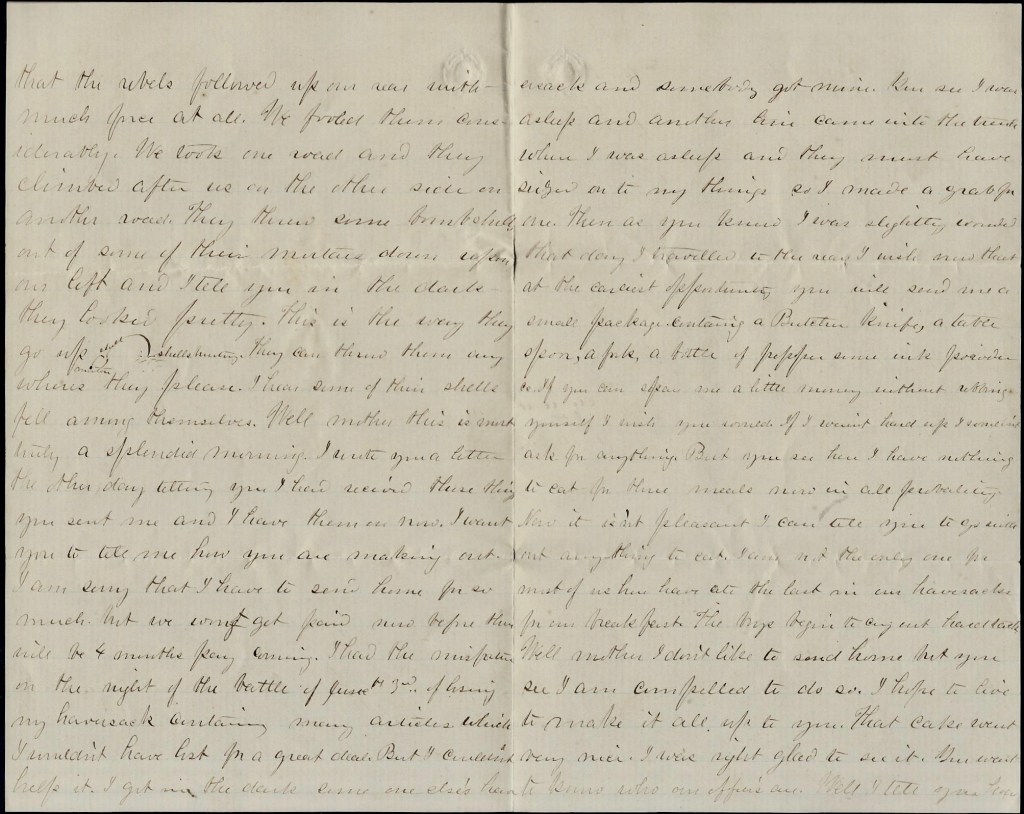 that the rebels followed up our rear with
much force at all. We fooled them cons-
iderably. We took one road and they
climbed after us on the other side on
another road. They threw some bombshells
out of some of their mortars down upon
our left and I tell you in the dark
they looked pretty. This is the way they
go up shell mortar shells bursting. They can throw them any
wheres they please. I hear some of their shells
fell among themselves. Well mother this is most
truly a splendid morning. I wrote you a letter
the other day telling you I had recieved those things
you sent me and I have them on now. I want
you to tell me how you are making out.
I am sorry that I have to send home for so
much but we won't get paid now before there
will be 4 months pay coming. I had the misfortune
on the night of the battle of June 3rd. of losing
my haversack containing many articles which
I wouldn't have lost for a great deal. But I couldn't
help it. I got in the dark some one else's haver
sack and somebody got mine. You see I was
asleep and another line came into the
when I was asleep and they must have
seized on to my things so I made a grab for
one. Then as you know I was slightly wounded
that day I travelled to the rear. I wish now that
at the earliest oppertunity you will send me a
small package containg a Butcher knife, a table
spoon, a fork, a bottle of pepper some ink powder
&c. If you can spare me a little money without robbing
yourself I wish you would. If I wasn't hard up I wouldn't
ask for anything. But you see here I have nothing
to eat for three meals now in all probality.
Now it is'nt pleasant I can tell you to go with
out any thing to eat. I am not the only one for
most of us here have ate the last in our haversacks
for our breakfast. The boys begin to cry out hard tack
Well mother I don't like to send home but you
see I am compelled to do so. I hope to live
to make it all up to you. That cake went
very nice. I was right glad to see it. You want
to know who our officers are. Well I tell you